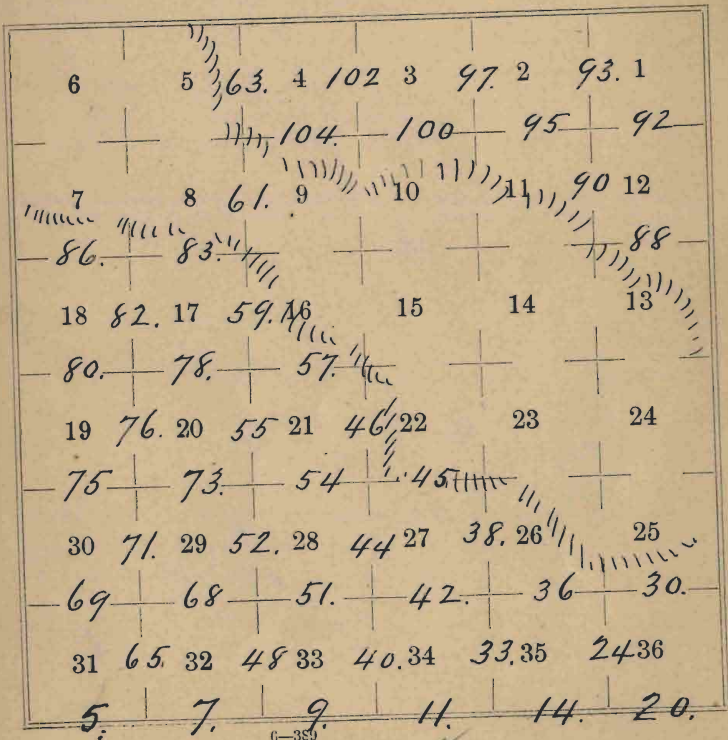 6 5 63. 4 102 3 97. 2 93. 1
104. 100 95 92
7 8 61. 9 10 11 90 12
86. 83. 88
18 82. 17 59. 16 15 14 13
80. 78. 57.
19 76. 20 55 21 46 22 23 24
75 73. 54 45
30 71. 29 52. 28 44 27 38. 26 25
69 68 51. 42. 36 30.
31 65. 32 48 33 40. 34 33. 35 24 36
5. 7. 9. 11. 14. 20.
6—389